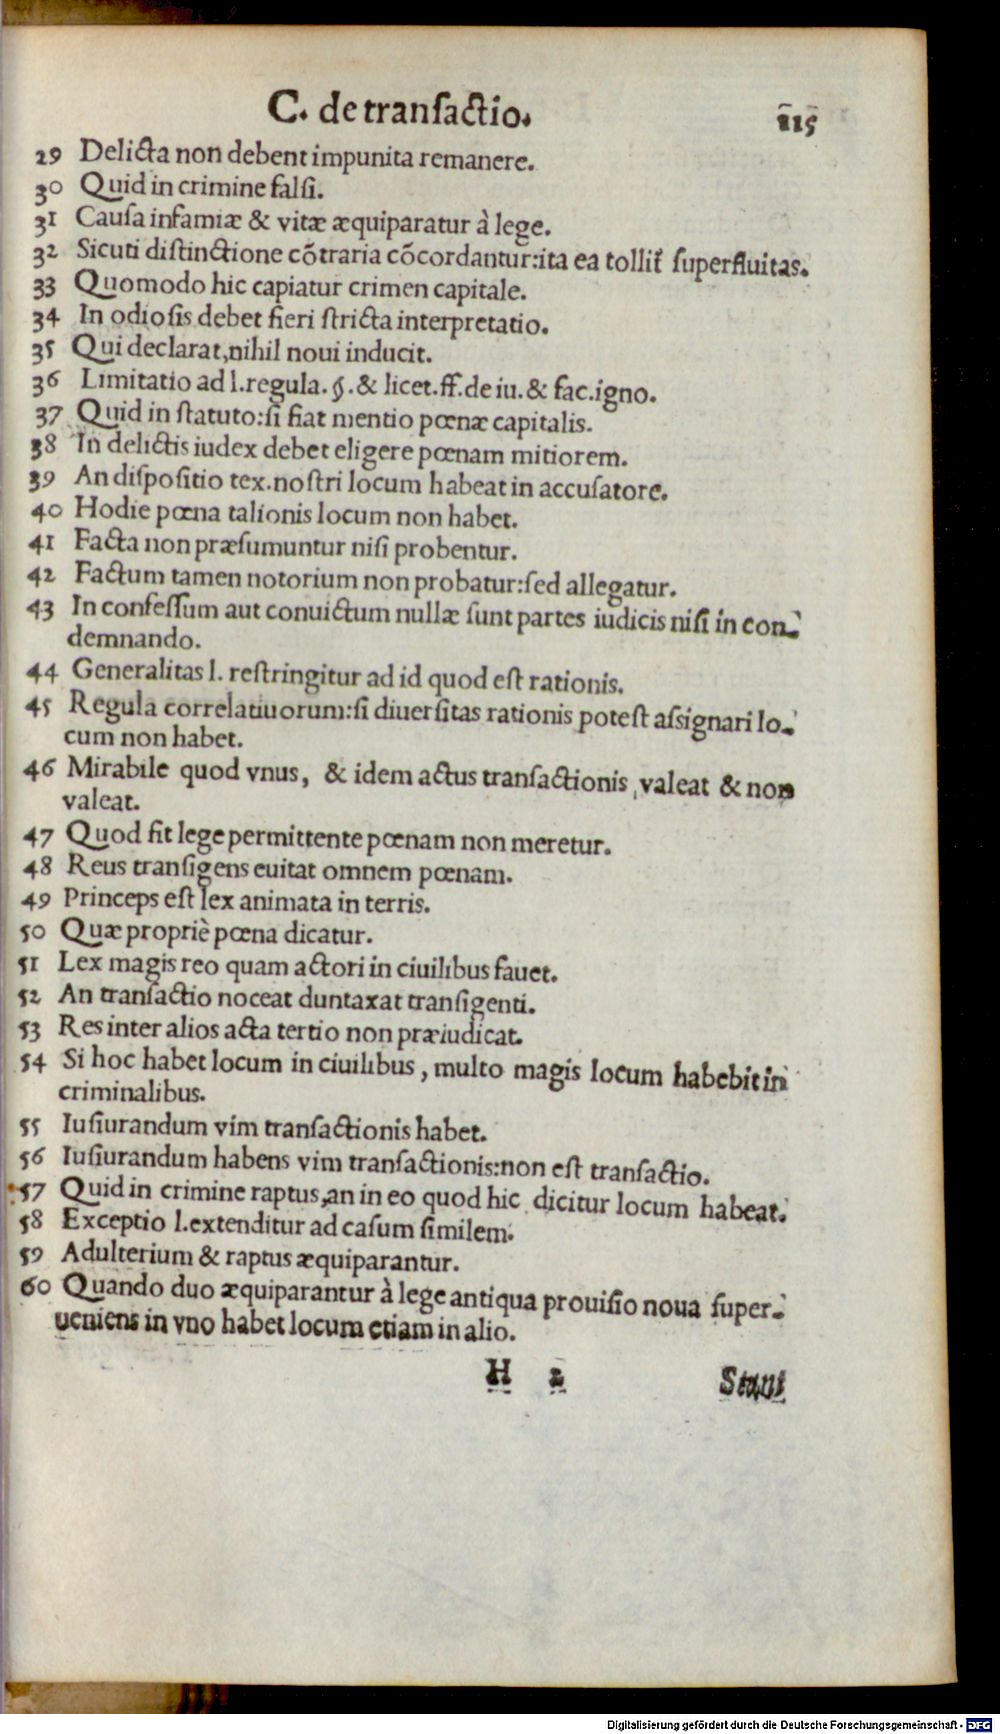 C. de transactio. 115
29 Delicta non debent impunita remanere.
30 Quid in crimine falsi.
31 Causa infamiæ & vitæ æquiparatur à lege.
32 Sicuti distinctione cõtraria cõcordantur:ita ea tollit᷑ superfluitas.
33 Quomodo hic capiatur crimen capitale.
34 In odiosis debet fieri stricta interpretatio.
35 Qui declarat,nihil noui inducit.
36 Limitatio ad l.regula. §.& licet.ff.de iu.& fac.igno.
37 Quid in statuto:si fiat mentio pœnæ capitalis.
38 In delictis iudex debet eligere pœnam mitiorem.
39 An dispositio tex.nostri locum habeat in accusatore.
40 Hodie pœna talionis locum non habet.
41 Facta non præsumuntur nisi probentur.
42 Factum tamen notorium non probatur:sed allegatur.
43 In confessum aut conuictum nullæ sunt partes iudicis nisi in con-
demnando.
44 Generalitas l. restringitur ad id quod est rationis.
45 Regula correlatiuorum:si diuersitas rationis potest assignari lo-
cum non habet.
46 Mirabile quod vnus, & idem actus transactionis, valeat & non
valeat.
47 Quod fit lege permittente pœnam non meretur.
48 Reus transigens euitat omnem pœnam.
49 Princeps est lex animata in terris.
50 Quæ propriè pœna dicatur.
51 Lex magis reo quam actori in ciuilibus fauet.
52 An transactio noceat duntaxat transigenti.
53 Res inter alios acta tertio non præiudicat.
54 Si hoc habet locum in ciuilibus, multo magis locum habebit in
criminalibus.
55 Iusiurandum vim transactionis habet.
56 Iusiurandum habens vim transactionis:non est transactio.
57 Quid in crimine raptus,an in eo quod hic dicitur locum habeat.
58 Exceptio l.extenditur ad casum similem.
59 Adulterium & raptus æquiparantur.
60 Quando duo æquiparantur à lege antiqua prouisio noua super-
ueniens in vno habet locum etiam in alio.
H 2 Stant
Digitalisierung gefördert durch die Deutsche Forschungsgemeinschaft - DFG